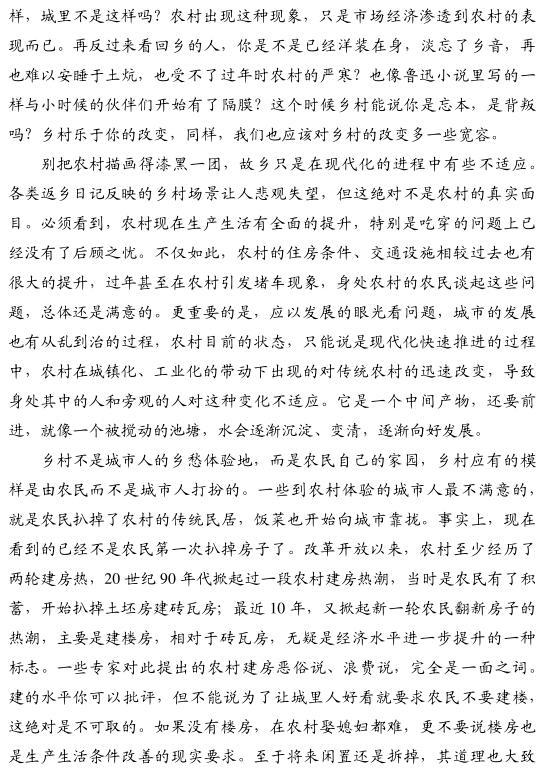 样，城里不是这样吗？农村出现这种现象，只是市场经济渗透到农村的表
现而已。再反过来看回乡的人，你是不是已经洋装在身，淡忘了乡音，再
也难以安睡于土炕，也受不了过年时农村的严寒？也像鲁迅小说里写的一
样与小时候的伙伴们开始有了隔膜？这个时候乡村能说你是忘本，是背叛
吗？乡村乐于你的改变，同样，我们也应该对乡村的改变多一些宽容。
别把农村描画得漆黑一团，故乡只是在现代化的进程中有些不适应。
各类返乡日记反映的乡村场景让人悲观失望，但这绝对不是农村的真实面
目。必须看到，农村现在生产生活有全面的提升，特别是吃穿的问题上已
经没有了后顾之忧。不仅如此，农村的住房条件、交通设施相较过去也有
很大的提升，过年甚至在农村引发堵车现象，身处农村的农民谈起这些问
题，总体还是满意的。更重要的是，应以发展的眼光看问题，城市的发展
也有从乱到治的过程，农村目前的状态，只能说是现代化快速推进的过程
中，农村在城镇化、工业化的带动下出现的对传统农村的迅速改变，导致
身处其中的人和旁观的人对这种变化不适应。它是一个中间产物，还要前
进，就像一个被搅动的池塘，水会逐渐沉淀、变清，逐渐向好发展。
乡村不是城市人的乡愁体验地，而是农民自己的家园，乡村应有的模
样是由农民而不是城市人打扮的。一些到农村体验的城市人最不满意的，
就是农民扒掉了农村的传统民居，饭菜也开始向城市靠拢。事实上，现在
看到的已经不是农民第一次扒掉房子了。改革开放以来，农村至少经历了
两轮建房热，20 世纪 90 年代掀起过一段农村建房热潮，当时是农民有了积
蓄，开始扒掉土坯房建砖瓦房；最近 10 年，又掀起新一轮农民翻新房子的
热潮，主要是建楼房，相对于砖瓦房，无疑是经济水平进一步提升的一种
标志。一些专家对此提出的农村建房恶俗说、浪费说，完全是一面之词。
建的水平你可以批评，但不能说为了让城里人好看就要求农民不要建楼，
这绝对是不可取的。如果没有楼房，在农村娶媳妇都难，更不要说楼房也
是生产生活条件改善的现实要求。至于将来闲置还是拆掉，其道理也大致